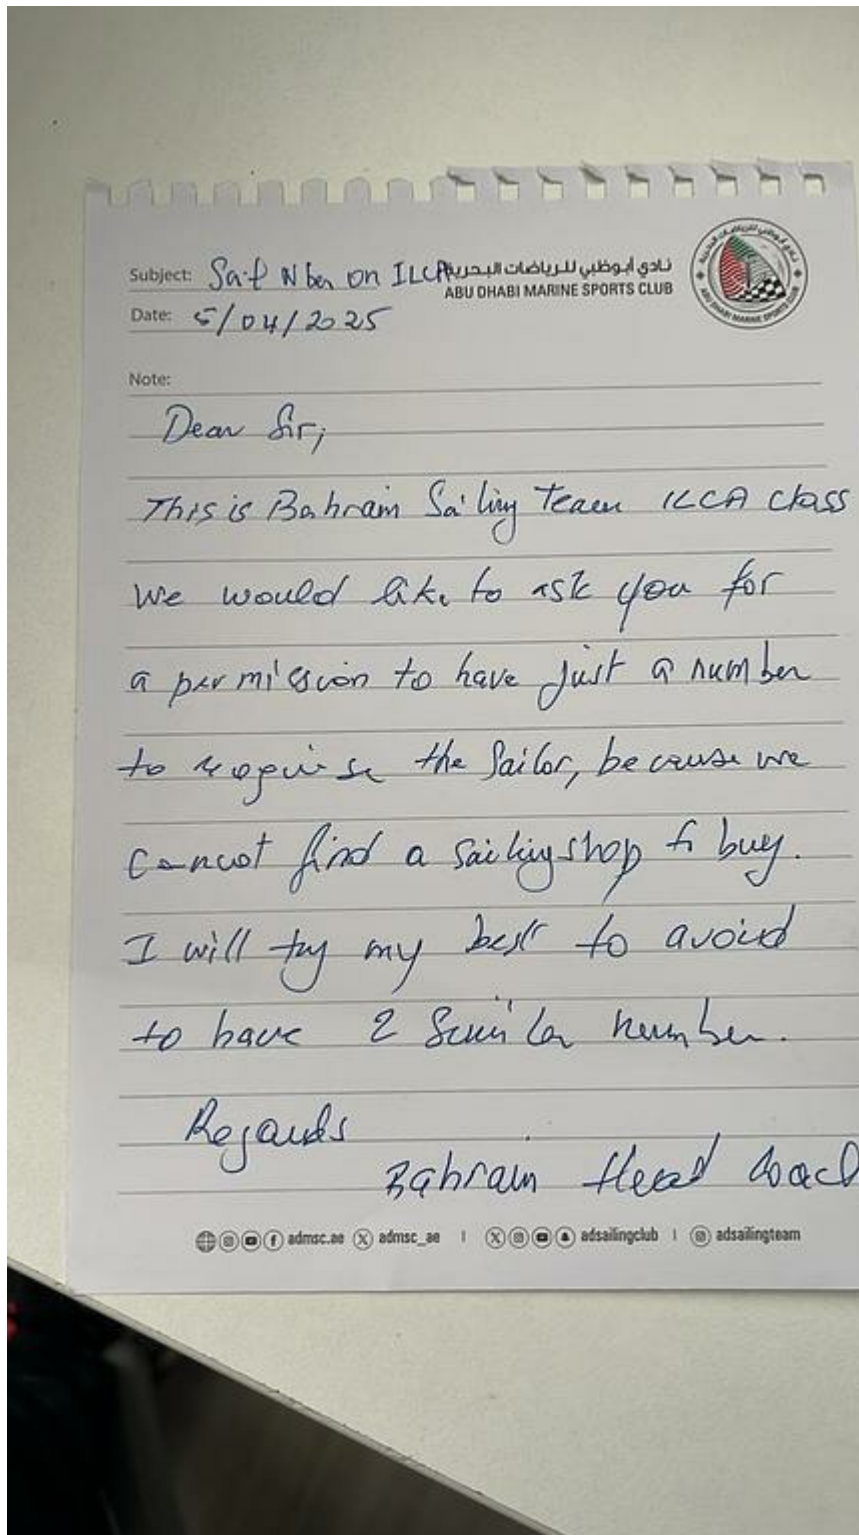 Subject: Sail Nber on ILCA
نادي أبوظبي للرياضات البحرية
ABU DHABI MARINE SPORTS CLUB
Date: 5/04/2025
Note:
Dear Sir,
This is Bahrain Sailing Team ILCA class
We would like to ask you for
a permission to have just a number
to the Sailor, because we
cannot find a sailing shop to buy.
I will try my best to avoid
to have 2 Similar number.
Regards
Bahrain Head Coach
admsc.ae admsc_ae | adsailingclub | adsailingteam